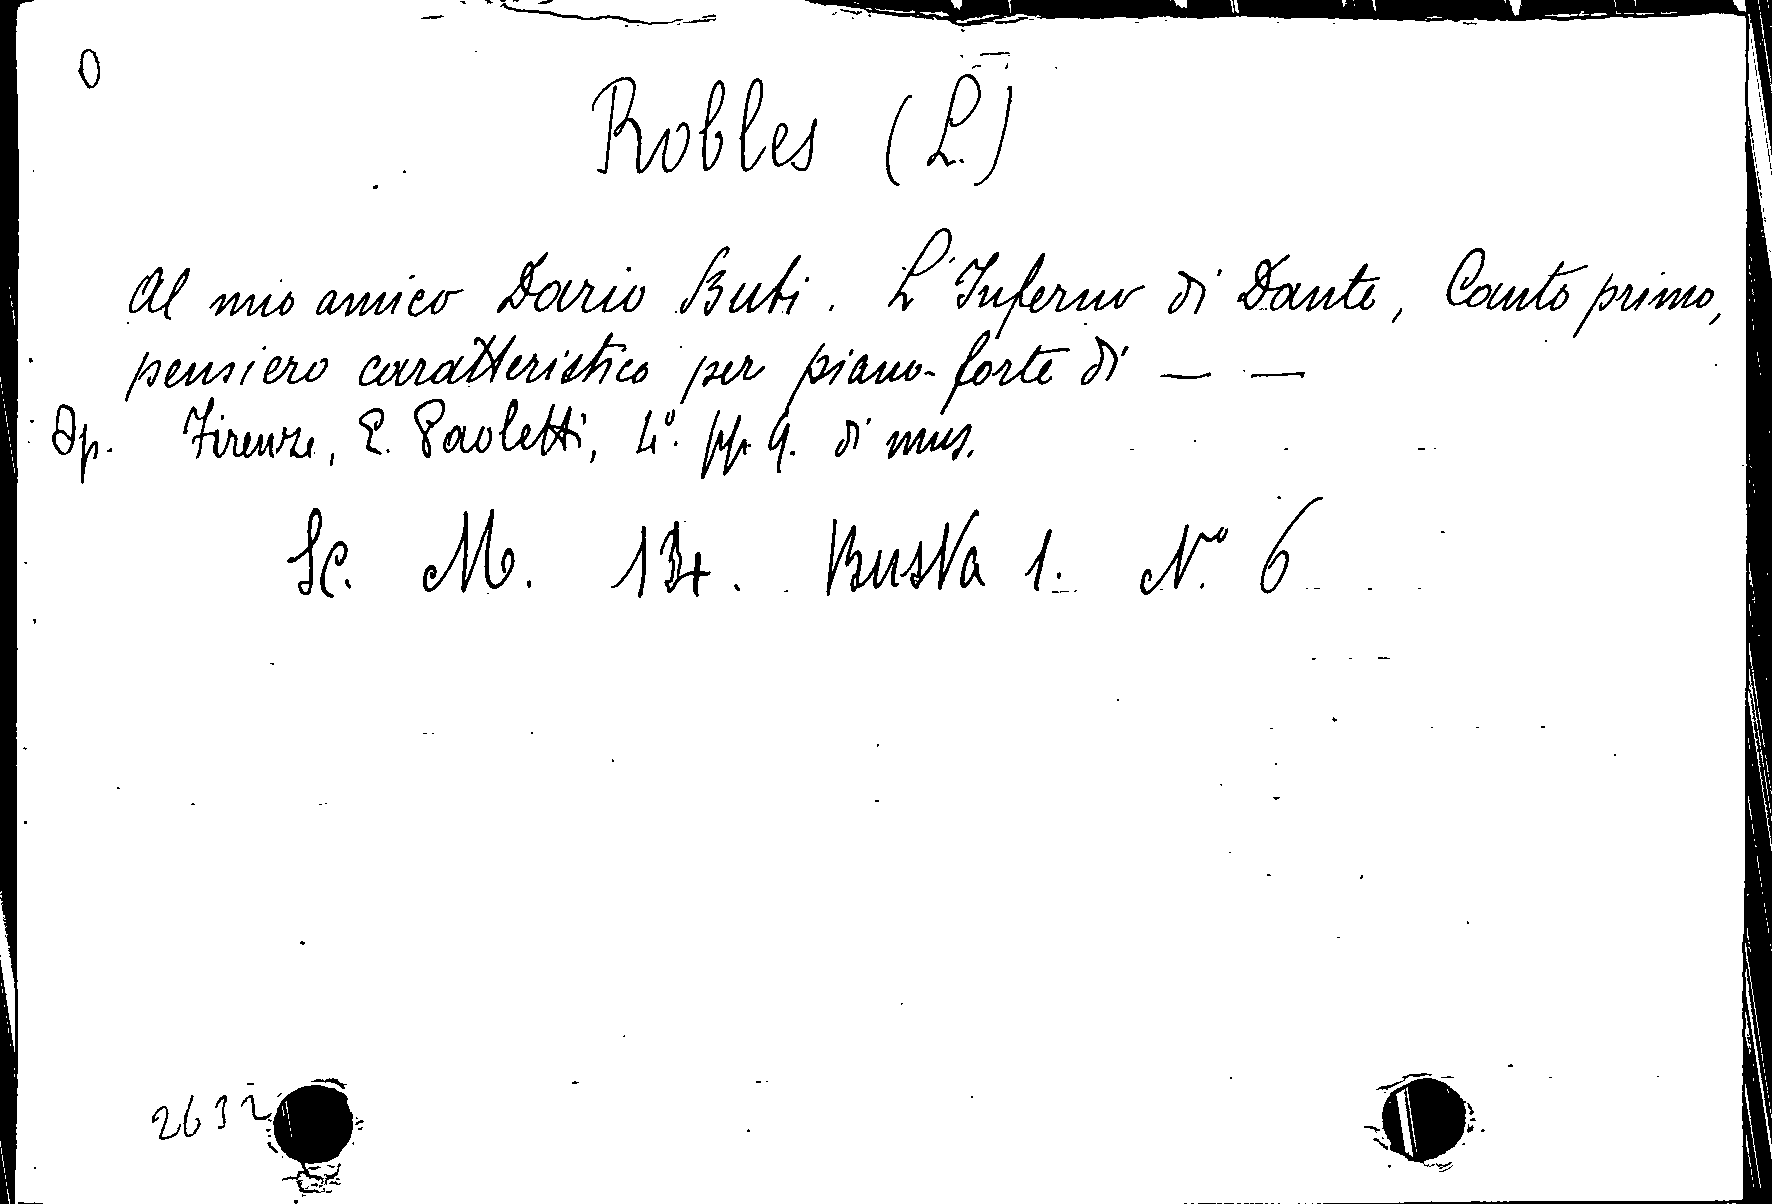 0
Robles (L.)
Al mio amico Dario Buti. L'Inferno di Dante, Canto primo,
pensiero caratteristico per piano-forte di — —
Op. Firenze, E. Paoletti, 4°. pp. 9. di mus.
Sc. M. 134. Busta 1. N.° 6
2632